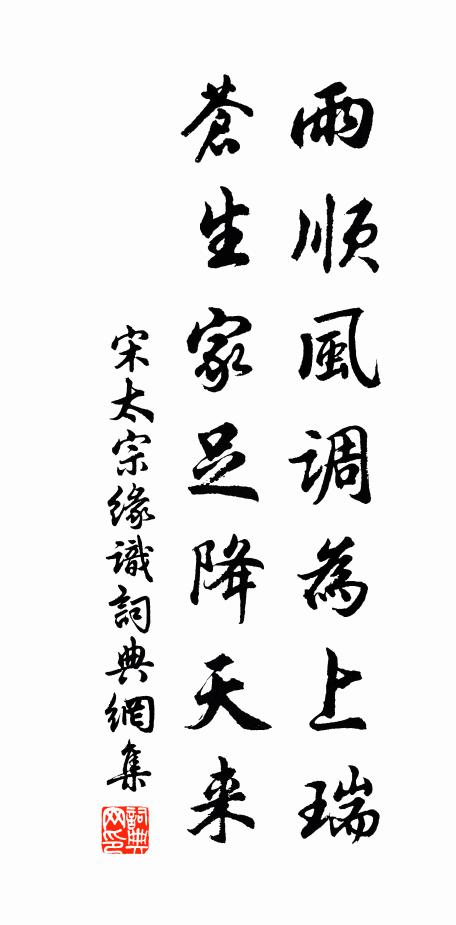 雨順風調為上瑞
蒼生家足降天来
宋太宗緣識詞典網集
詞典网印